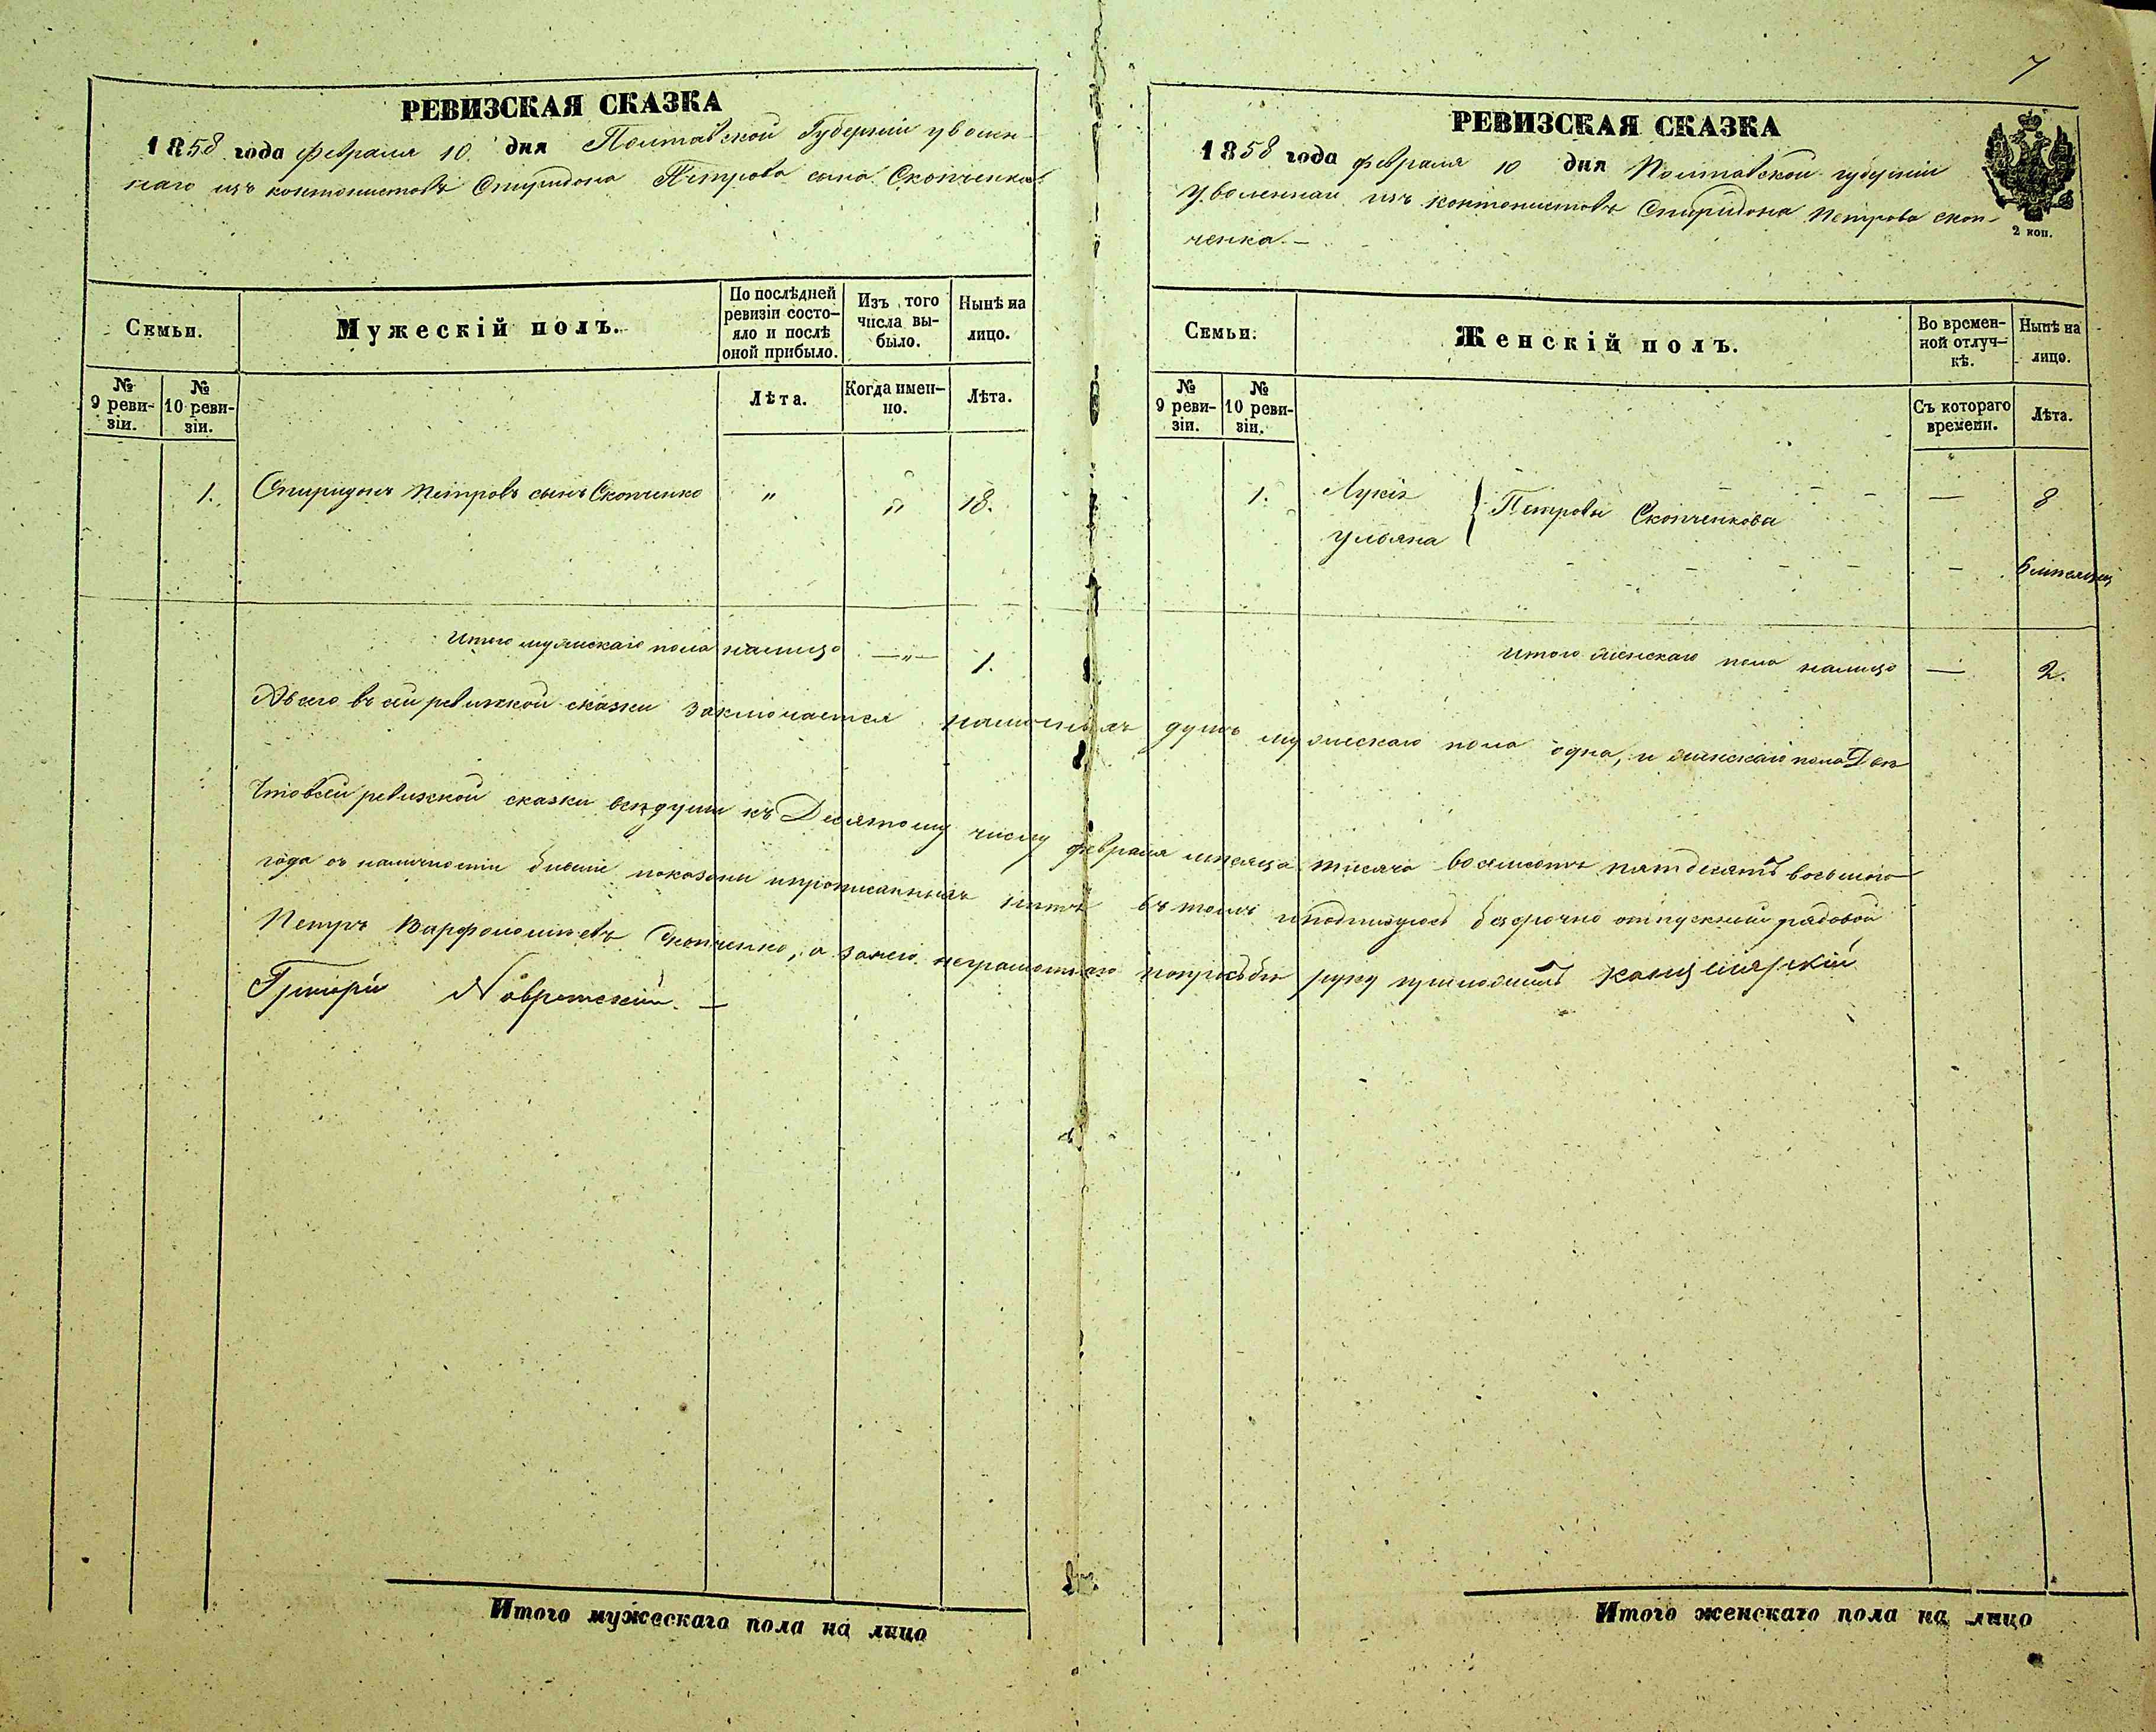 7
РЕВИЗСКАЯ СКАЗКА
1858 года февраля 10 дня Полтавской Губерніи уволен-
наго изъ контонистовъ Спиридона Петрова сына Скопченка
Семьи.
Мужескій полъ.
По послѣдней ревизіи состо-
яло и послѣ оной прибыло.
Изъ того числа вы-
было.
Нынѣ на лицо.
№ 9 реви-
зіи.
№ 10 реви-
зіи.
Лѣта.
Когда имен-
но.
Лѣта.
1. Спиридонъ Петровъ сынъ Скопченко " " 18.
Итого мужескаго пола налицо —"— 1.
РЕВИЗСКАЯ СКАЗКА
2 коп.
1858 года февраля 10 дня Полтавской губерніи
уволеннаго изъ контонистовъ Спиридона Петрова Скоп-
ченка. —
Семьи.
Женскій полъ.
Во времен-
ной отлуч-
кѣ.
Нынѣ на лицо.
№ 9 реви-
зіи.
№ 10 реви-
зіи.
Съ котораго времени.
Лѣта.
1. Лукія } Петровы Скопченкова — 8
Ульяна — 6 мѣсяцъ
Итого женскаго пола налицо — 2.
А всего в сей ревизкой сказки заключается наличныхъ душъ мужескаго пола одна, и женскаго пола Двѣ
Что в сей ревизкой сказки всѣ души къ Десятому числу февраля мѣсяца тисяча восемсотъ пятдесятъ восьмого
года въ наличности бывшіе показаны и прописанныхъ нѣтъ въ томъ и подпизуюсь безсрочно отпускний рядовой
Петръ Варфоломѣевъ Скопченко, а за него неграмотнаго по прозьбѣ руку приложилъ Канцелярскій
Григорій Навротскій. —
Итого мужескаго пола на лицо
Итого женскаго пола на лицо